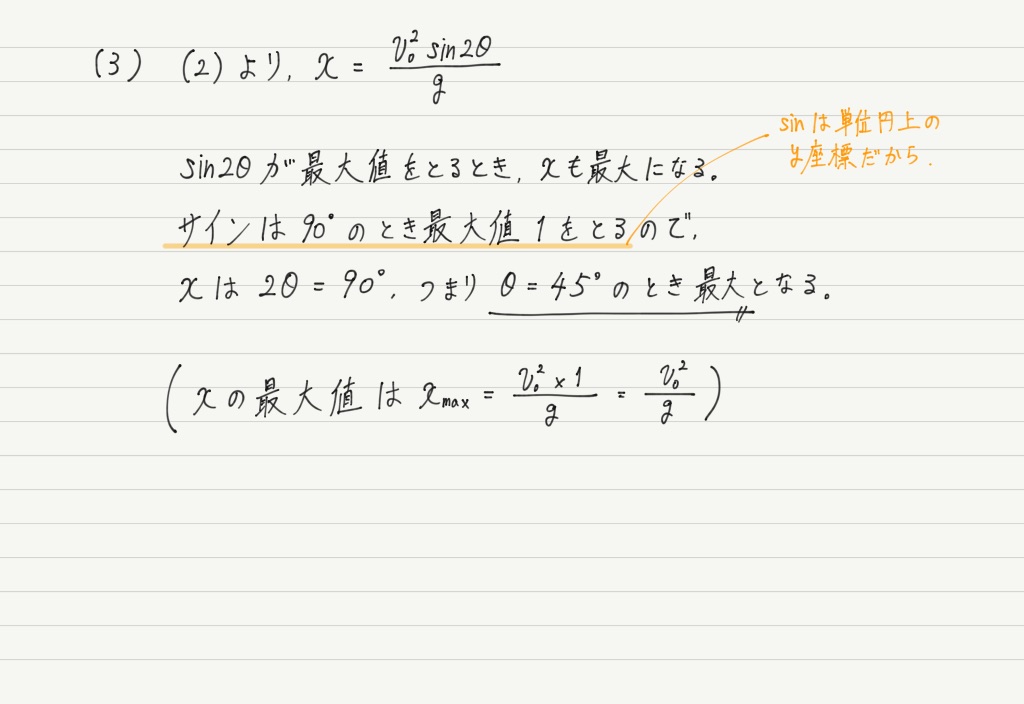 (3) (2)より, x = v₀² sin2θ / g
sinは単位円上の
y座標だから.
sin2θ が最大値をとるとき, xも最大になる。
サインは 90° のとき最大値 1 をとるので,
xは 2θ = 90°, つまり θ = 45° のとき最大となる。
( xの最大値は x_max = v₀² × 1 / g = v₀² / g )